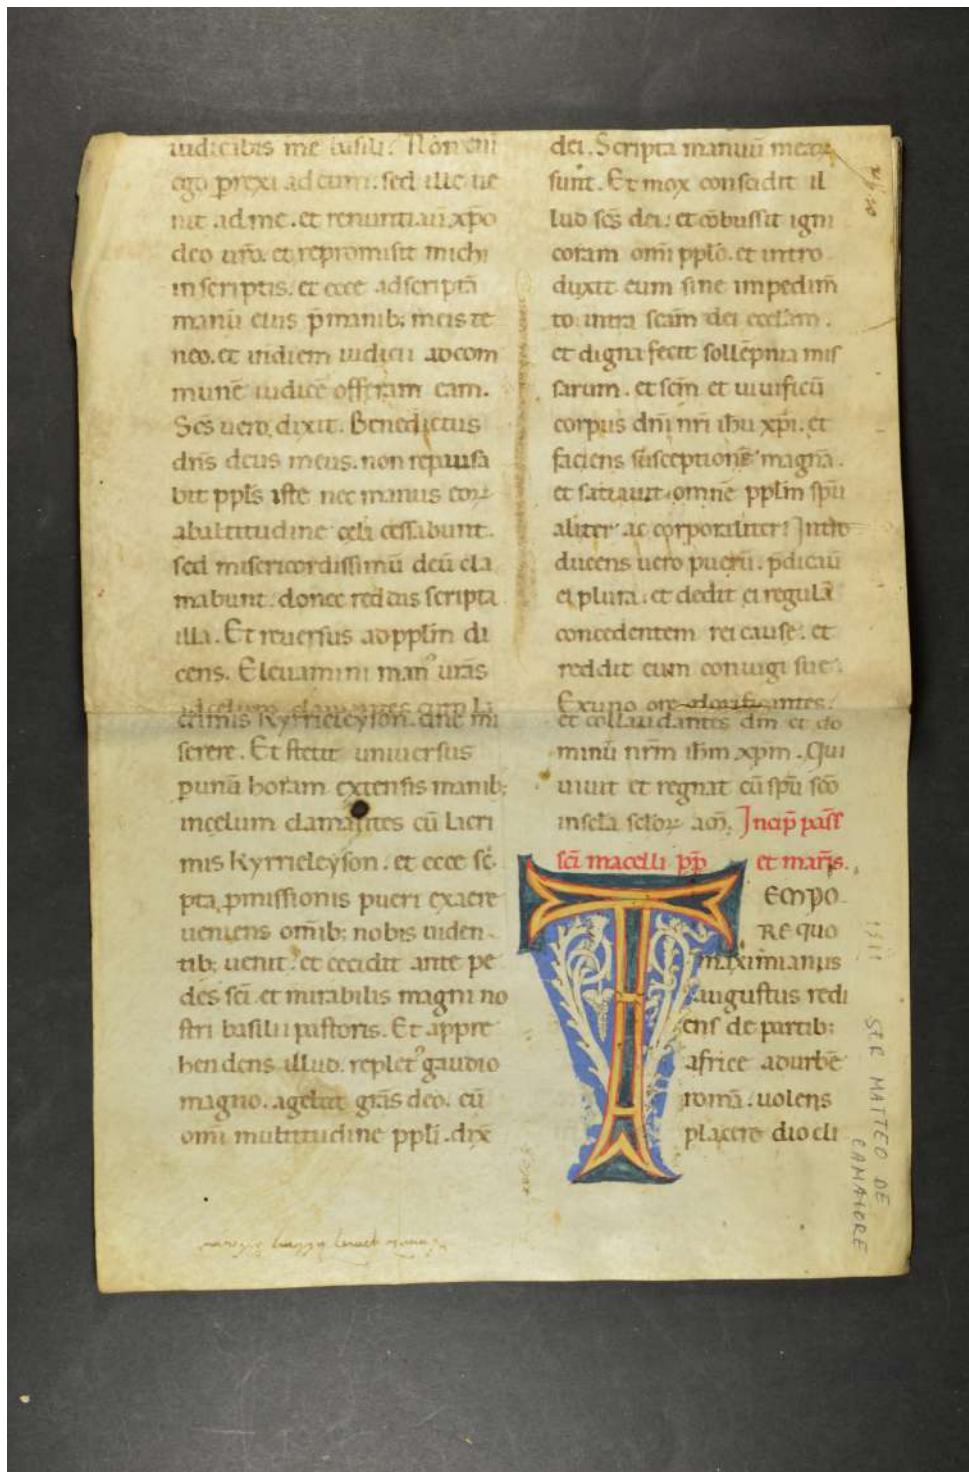 iudicibis me basili. Non eni
ego ꝑrexi ad eum. sed ille ue
nit ad me. et renuntiauit xp̄o
deo ur̄o. et repromisit michi
in scriptis. et ecce adscriptā
manū eius p̄ manib; meis te
neo. et indiem iudicii ad com
munē iudicē offeram eam.
Sc̄s uero dixit. Benedictus
dn̄s deus meus. non repausa
bit ppl̄s iste nec manus eoꝝ
abaltitudine celi cessabunt.
sed misericordissimū deū cla
mabunt. donec reddas scripta
illa. Et reuersus ad ppl̄m di
cens. Eleuamini man᷒ ur̄as
ad celum clamantes cum la
crimis kyrrieleyson. dn̄e mi
serere. Et stetit uniuersus
ꝑ unā horam extensis manib;
incelum clamantes cū lacri
mis kyrrieleyson. et ecce sc̄
pta ꝑmissionis pueri exaere
ueniens om̄ib; nobis uiden
tib; uenit. et cecidit ante pe
des sc̄i et mirabilis magni no
stri basilii pastoris. Et appre
hendens illud. replet᷒ gaudio
magno. agebat gr̄as deo. cū
om̄i multitudine ppl̄i. dix̄
dei. Scripta manuū meaꝝ
sunt. Et mox conscidit il
lud sc̄s dei. et cōbussit igni
coram om̄i ppl̄o. et intro
duxit eum sine impedim̄
to intra sc̄am dei eccl̄am.
et digna fecit sollēpnia mis
sarum. et sc̄m et uiuificū
corpus dn̄i nr̄i ih̄u xp̄i. et
faciens susceptionē magnā.
et satiauit omnē ppl̄m spū
aliter ac corporaliter. Intro
ducens uero puerū. p̄dicauit
ei plura. et dedit ei regulā
concedentem rei cause. et
reddit eum coniugi sue.
Ex uno ore glorificantes.
et collaudantes dm̄ et do
minū nr̄m ih̄m xp̄m. Qui
uiuit et regnat cū spū sc̄o
in sc̄la sc̄loꝝ am̄. Incip̄ pass̄
sc̄i marcelli pp̄ et mar̄is.
TEMPO
RE quo
maximianus
augustus redi
ens de partib;
africe ad urbē
romā. uolens
placere diocli
SER MATTEO DE
CAMAIORE